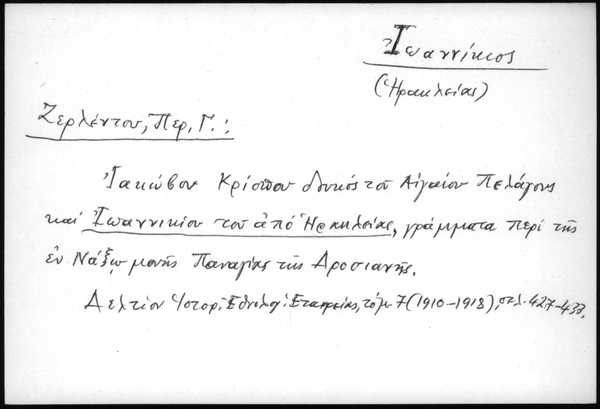 Ἰωαννίκιος
(Ἡρακλείας)
Ζερλέντου, Περ. Γ. :
Ἰακώβου Κρίσπου δουκός τοῦ Αἰγαίου Πελάγους
καί Ἰωαννικίου τοῦ ἀπό Ἡρακλείας, γράμματα περί τῆς
ἐν Νάξῳ μονῆς Παναγίας τῆς Δροσιανῆς.
Δελτίον Ἱστορ. Ἐθνολογ. Ἑταιρείας, τόμ. 7 (1910-1918), σελ. 427-433.